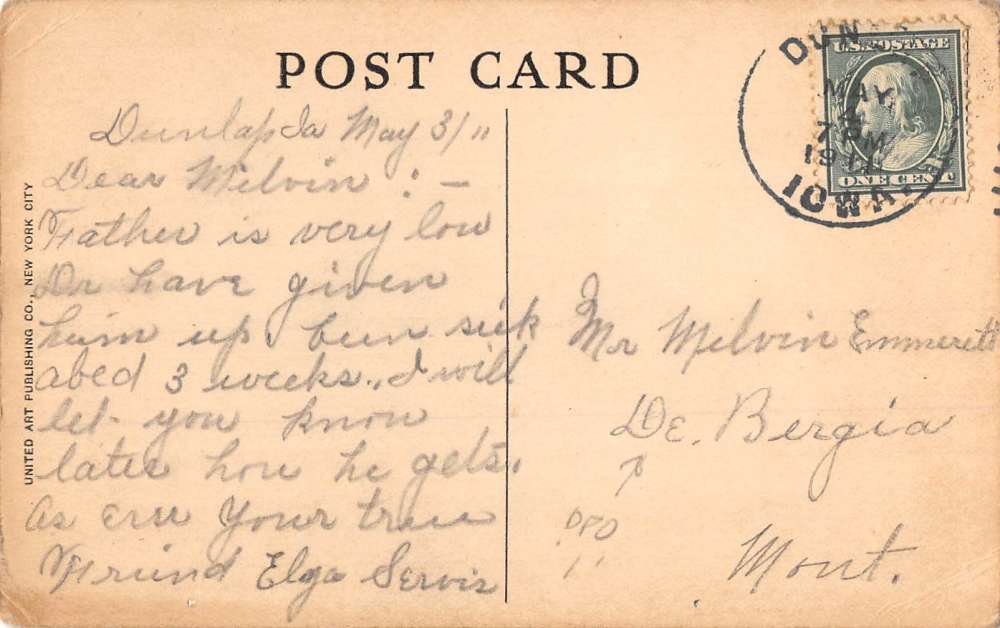 POST CARD
UNITED ART PUBLISHING CO., NEW YORK CITY
Dunlap Ia May 3/11
Dear Melvin : –
Father is very low
Dr have given
him up. been sick
abed 3 weeks., I will
let you know
later how he gets.
As ever Your true
Friend Elga Servis
DUN
MAY
7 PM
1911
IOWA.
U.S. POSTAGE
ONE CENT
Mr Melvin Emmerett
De. Bergia
DPO
Mont.